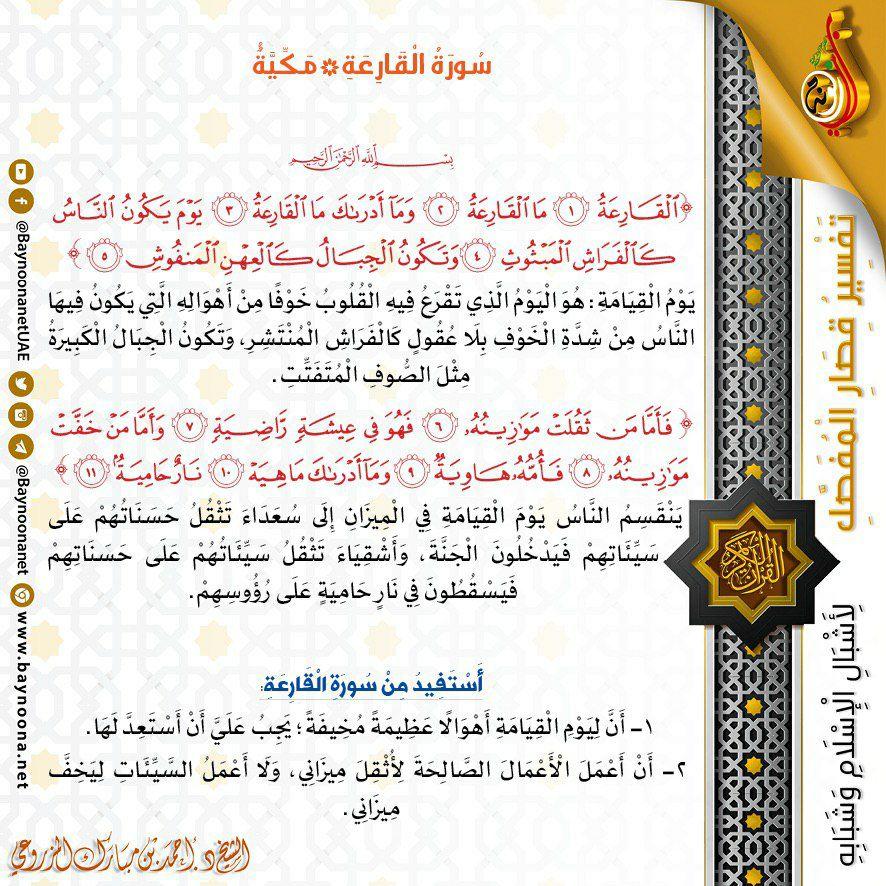 سُورَةُ الْقَارِعَةِ * مَكِّيَّةٌ
بِسْمِ اللَّهِ الرَّحْمَٰنِ الرَّحِيمِ
﴿ٱلۡقَارِعَةُ ١ مَا ٱلۡقَارِعَةُ ٢ وَمَآ أَدۡرَىٰكَ مَا ٱلۡقَارِعَةُ ٣ يَوۡمَ يَكُونُ ٱلنَّاسُ
كَٱلۡفَرَاشِ ٱلۡمَبۡثُوثِ ٤ وَتَكُونُ ٱلۡجِبَالُ كَٱلۡعِهۡنِ ٱلۡمَنفُوشِ ٥﴾
يَوْمُ الْقِيَامَةِ: هُوَ الْيَوْمُ الَّذِي تَقْرَعُ فِيهِ الْقُلُوبُ خَوْفًا مِنْ أَهْوَالِهِ الَّتِي يَكُونُ فِيهَا
النَّاسُ مِنْ شِدَّةِ الْخَوْفِ بِلَا عُقُولٍ كَالْفَرَاشِ الْمُنْتَشِرِ، وَتَكُونُ الْجِبَالُ الْكَبِيرَةُ
مِثْلَ الصُّوفِ الْمُتَفَتِّتِ.
﴿فَأَمَّا مَن ثَقُلَتۡ مَوَٰزِينُهُۥ ٦ فَهُوَ فِي عِيشَةٖ رَّاضِيَةٖ ٧ وَأَمَّا مَنۡ خَفَّتۡ
مَوَٰزِينُهُۥ ٨ فَأُمُّهُۥ هَاوِيَةٞ ٩ وَمَآ أَدۡرَىٰكَ مَا هِيَهۡ ١٠ نَارٌ حَامِيَةُۢ ١١﴾
يَنْقَسِمُ النَّاسُ يَوْمَ الْقِيَامَةِ فِي الْمِيزَانِ إِلَى سُعَدَاءَ تَثْقُلُ حَسَنَاتُهُمْ عَلَى
سَيِّئَاتِهِمْ فَيَدْخُلُونَ الْجَنَّةَ، وَأَشْقِيَاءَ تَثْقُلُ سَيِّئَاتُهُمْ عَلَى حَسَنَاتِهِمْ
فَيَسْقُطُونَ فِي نَارٍ حَامِيَةٍ عَلَى رُؤُوسِهِمْ.
أَسْتَفِيدُ مِنْ سُورَةِ الْقَارِعَةِ:
١- أَنَّ لِيَوْمِ الْقِيَامَةِ أَهْوَالًا عَظِيمَةً مُخِيفَةً؛ يَجِبُ عَلَيَّ أَنْ أَسْتَعِدَّ لَهَا.
٢- أَنْ أَعْمَلَ الْأَعْمَالَ الصَّالِحَةَ لِأُثْقِلَ مِيزَانِي، وَلَا أَعْمَلُ السَّيِّئَاتِ لِيَخِفَّ
مِيزَانِي.
الشيخ د. أحمد بن مبارك المزروعي
تَفْسِيرُ قِصَارِ الْمُفَصَّلِ
القرآن الكريم
لِأَشْبَالِ الْإِسْلَامِ وَشَبَابِهِ
@BaynoonanetUAE
@Baynoonanet
www.baynoona.net